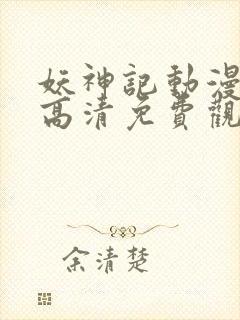 妖神記動漫
高清免費觀
余清楚